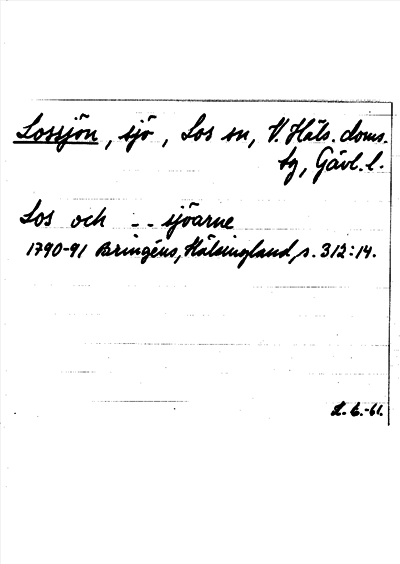 Lossjön, sjö, Los sn, V. Häls. doms.
tg, Gävl. l.
Los och -- sjöarne
1790-91 Bringéus, Hälsingland, s. 312:14.
L. E. -61.